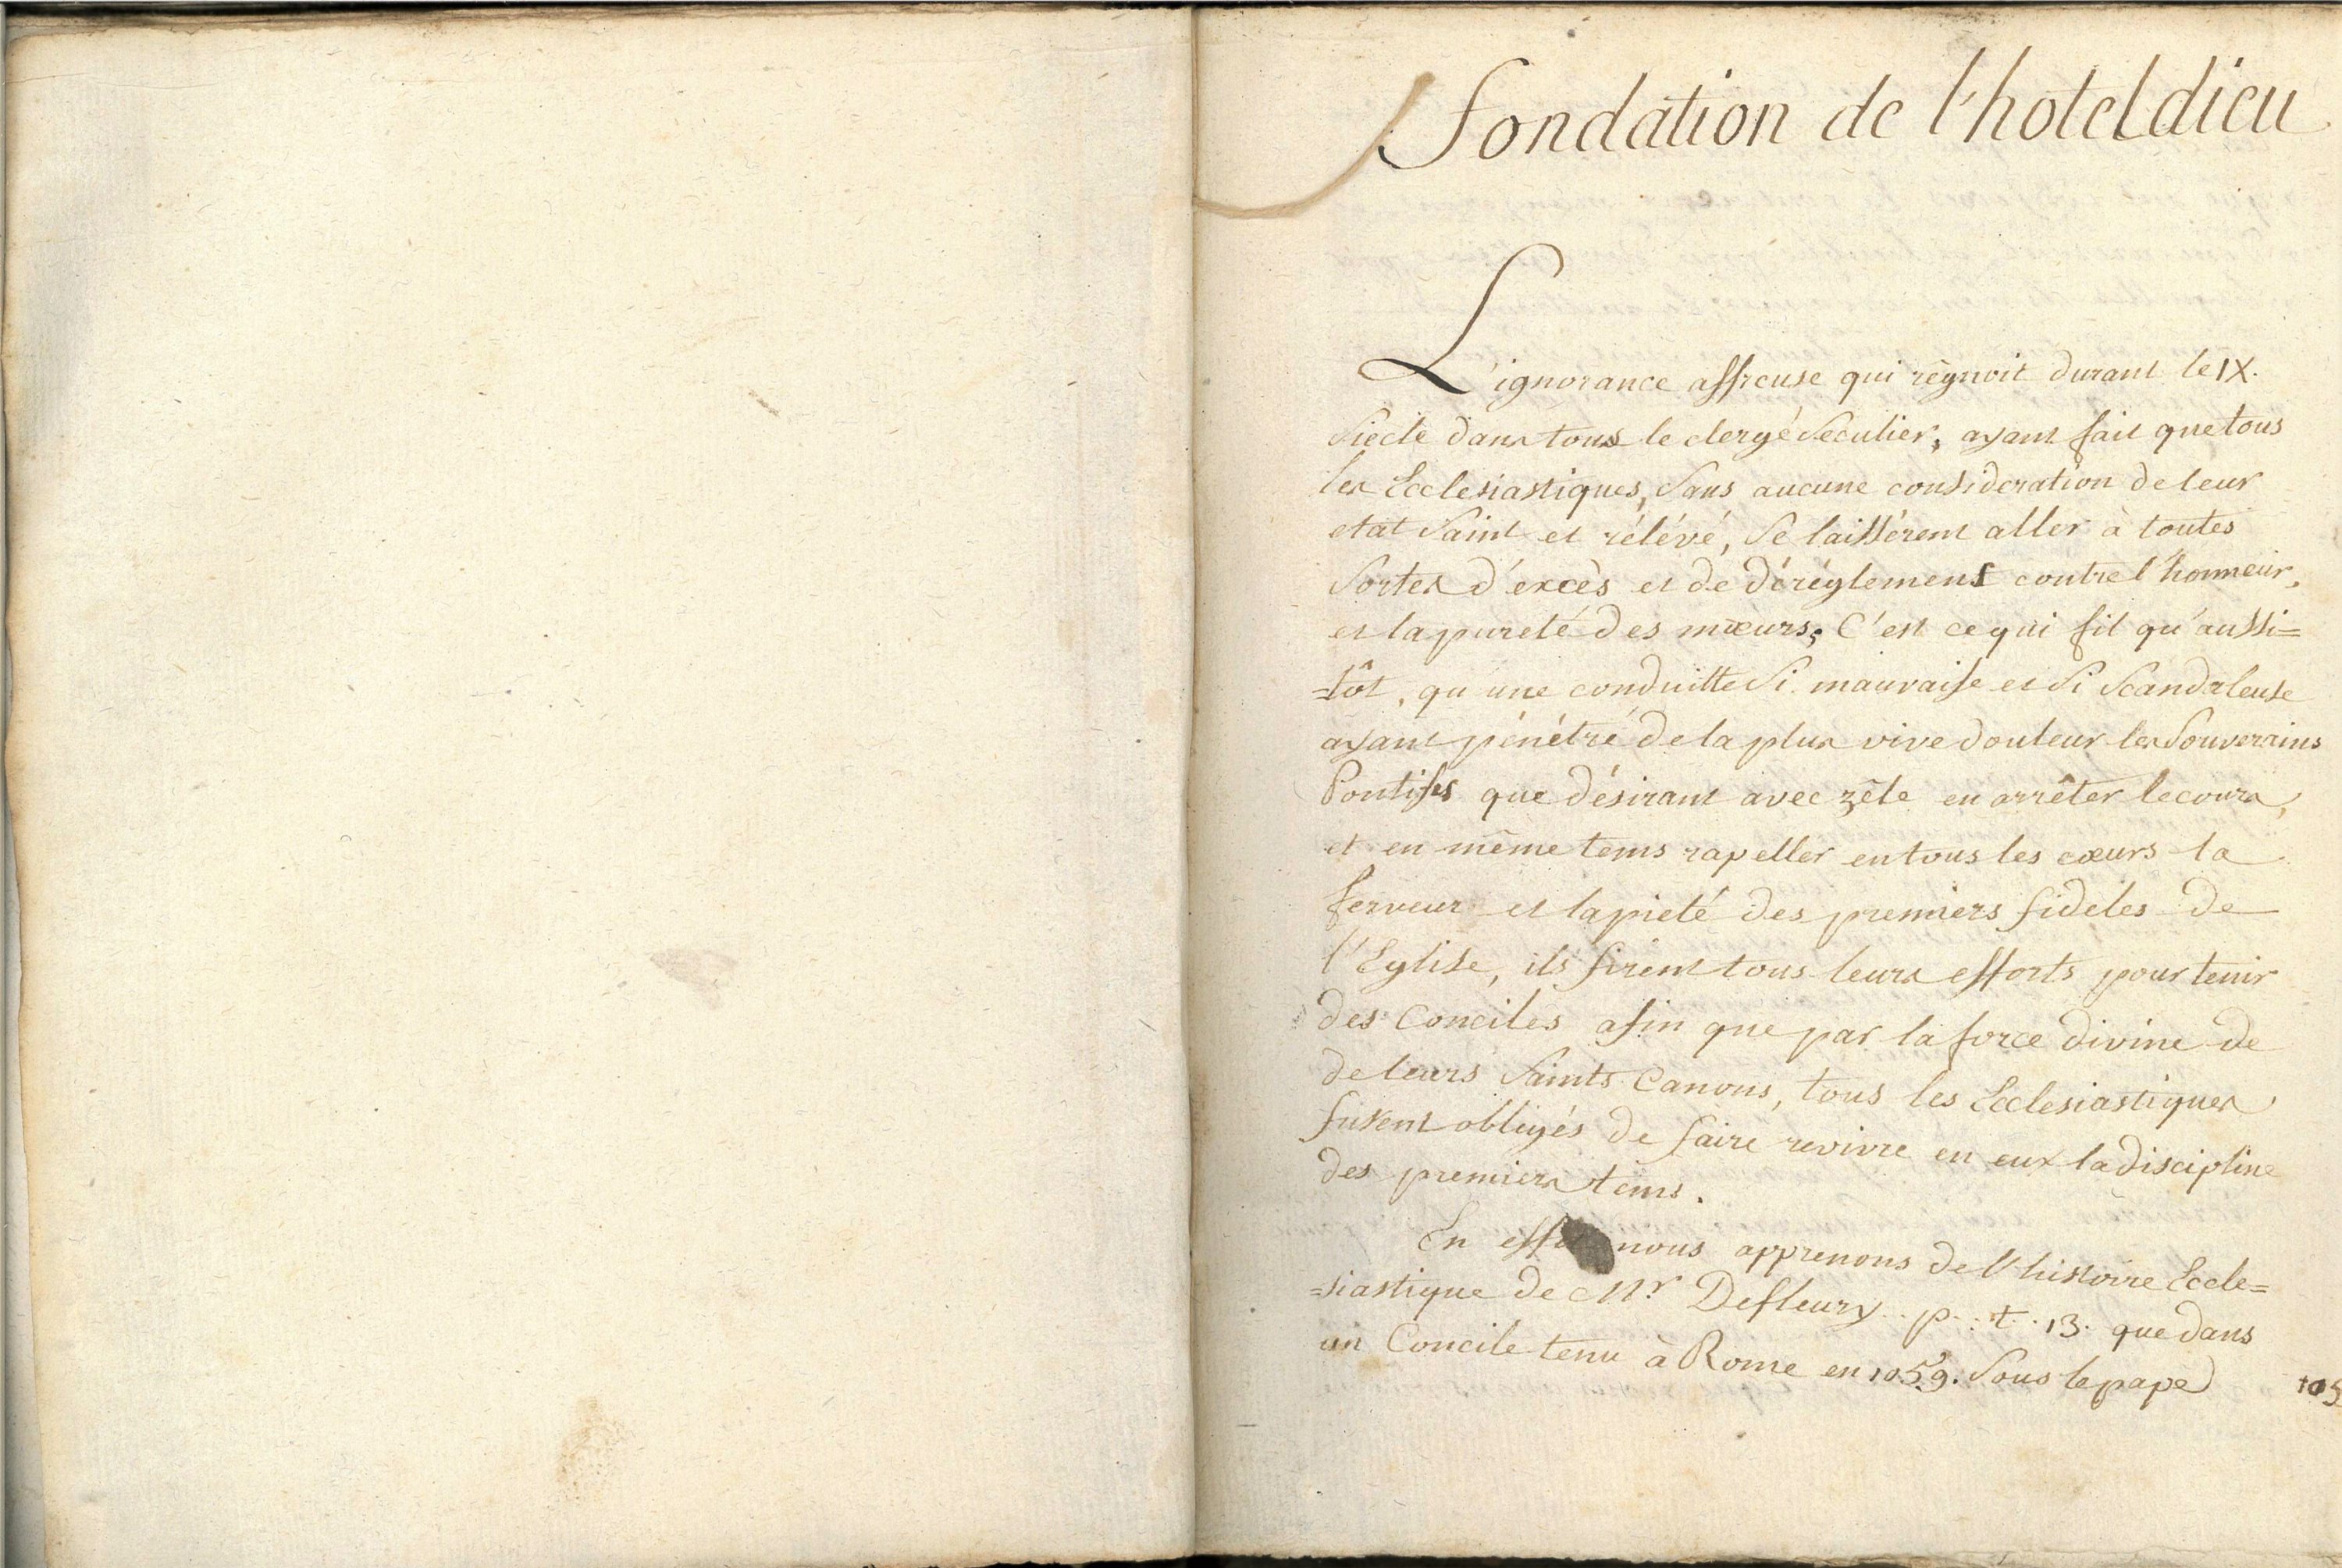 fondation de l'hoteldieu
L'ignorance affreuse qui rêgnoit durant le IX.
Siecle dans tous le clergé Seculier, ayant fait que tous
les Ecclesiastiques, Sans aucune consideration de leur
etat Saint et rélévé, Se laissérent aller à toutes
Sortes d'excès et de déréglemens contre l'honneur,
et la pureté des mœurs; C'est ce qui fit qu'aussi=
=tôt, qu'une conduitte Si mauvaise et Si Scandaleuse
ayant pénétré de la plus vive douleur les Souverains
Pontifes que désirant avec zêle en arrêter le cours,
et en même tems rapeller en tous les cœurs la
ferveur et la pieté des premiers fideles de
l'Eglise, ils firent tous leurs efforts pour tenir
des Conciles afin que par la force divine de
de leurs Saints Canons, tous les Ecclesiastiques
fusent obligés de faire revivre en eux la discipline
des premiers tems.
En effet nous apprenons de l'histoire Eccle=
=siastique de Mr Defleury p. t. 13. que dans
un Concile tenu à Rome en 1059. Sous le pape
105